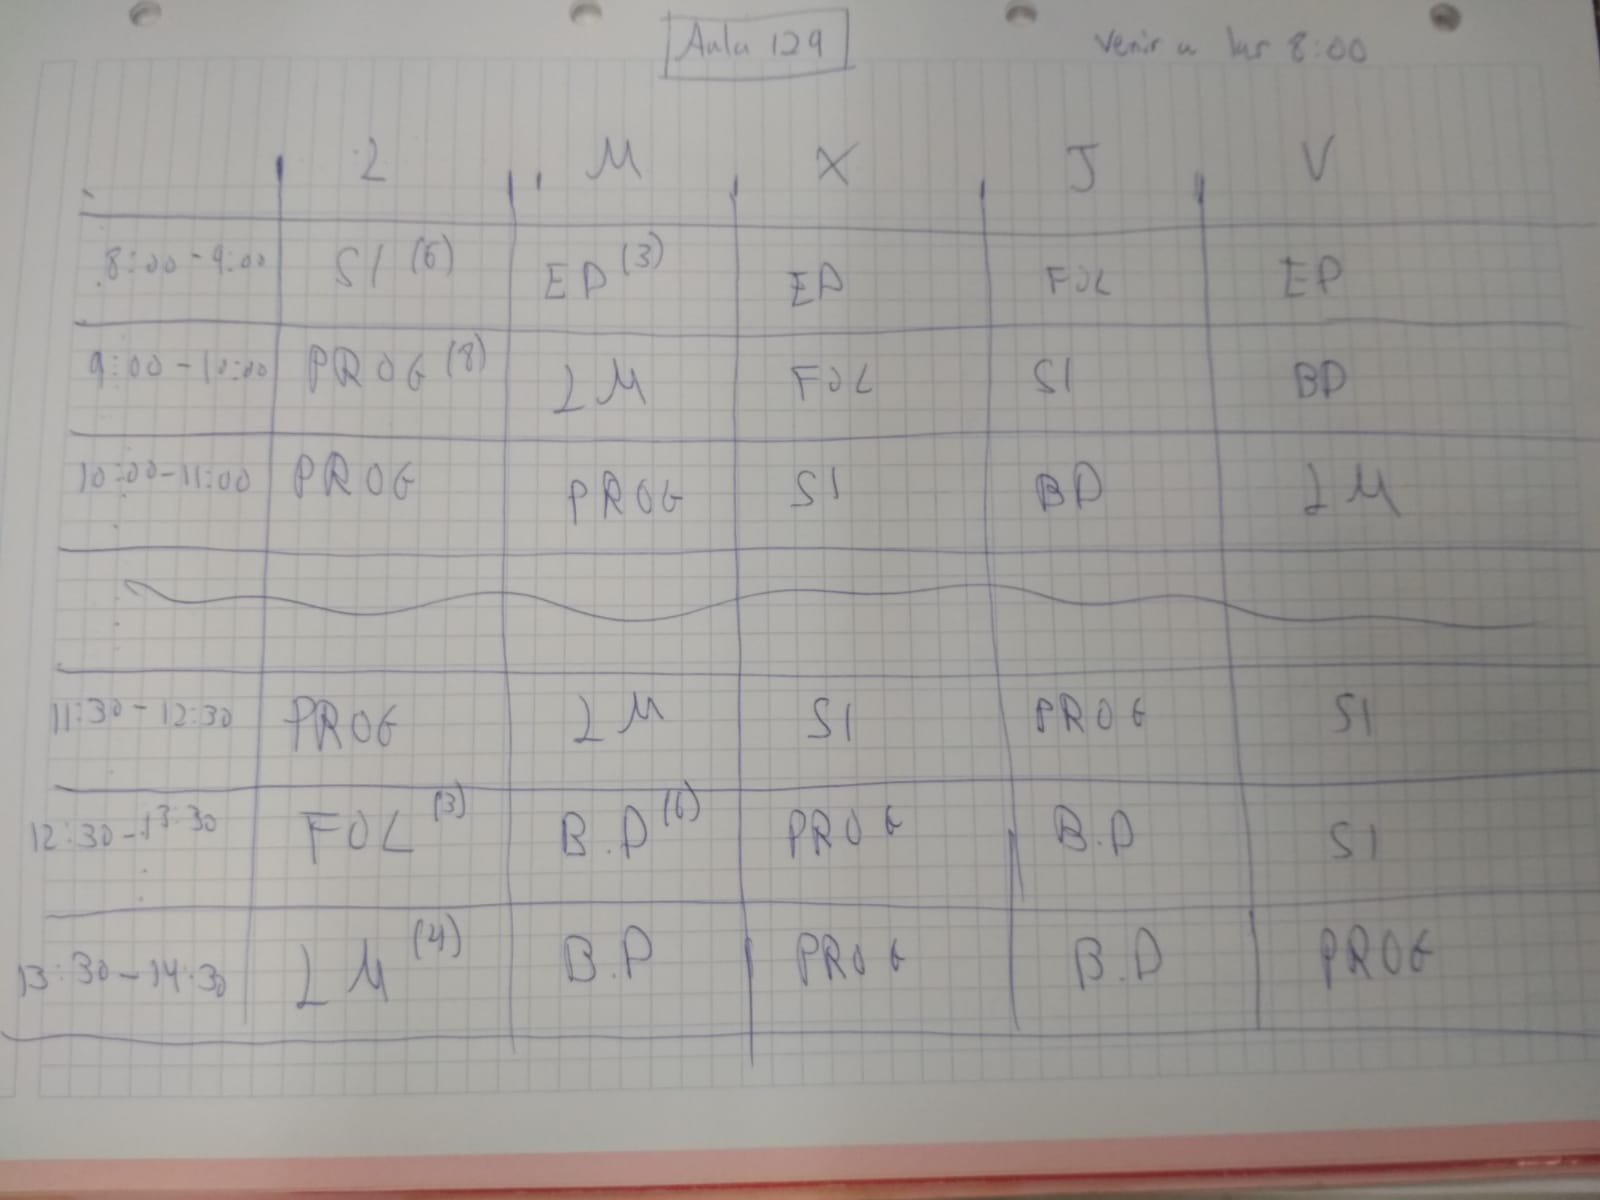 Aula 129
Venir a las 8:00
L M X J V
8:00-9:00 SI (6) ED (3) ED FOL ED
9:00-10:00 PROG (8) LM FOL SI BD
10:00-11:00 PROG PROG SI BD LM
11:30-12:30 PROG LM SI PROG SI
12:30-13:30 FOL (3) B.D (6) PROG B.D SI
13:30-14:30 LM (4) B.D PROG B.D PROG